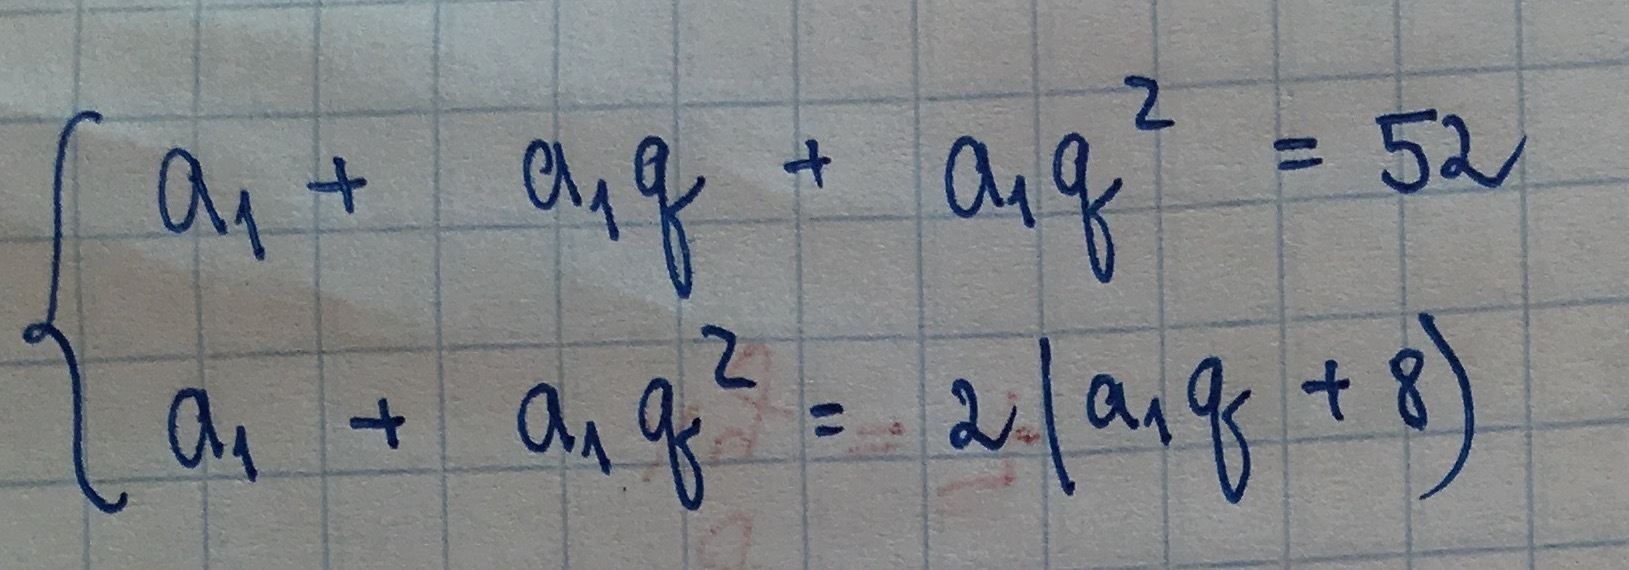 a₁ + a₁q + a₁q² = 52
a₁ + a₁q² = 2(a₁q + 8)